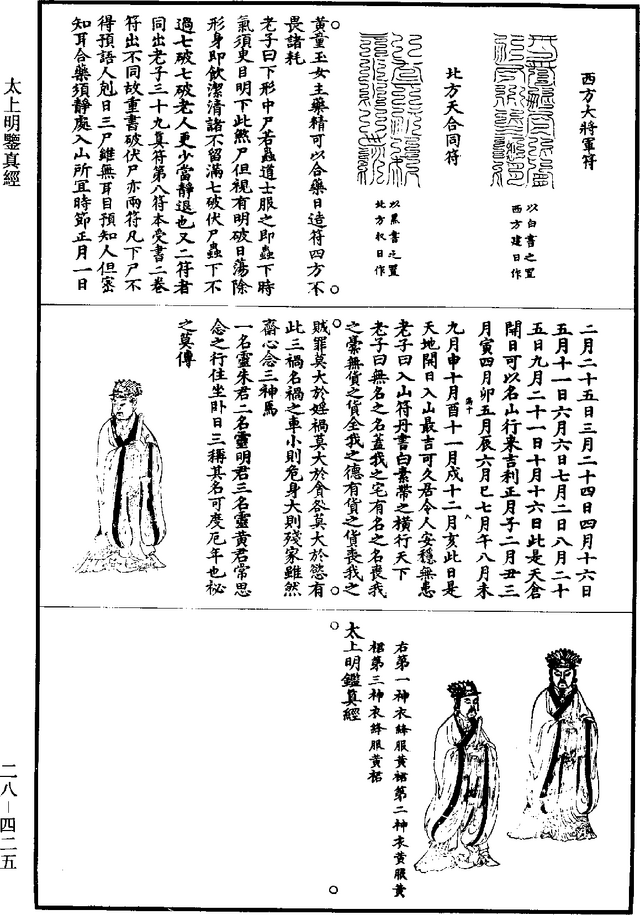 西方大將軍符
以白書之置
西方建日作
北方天合同符
以黑書之置
北方收日作
黃童玉女主藥精可以合藥日造符四方不
畏諸耗
老子曰下形中尸若蟲道士服之即蟲下時
氣須臾日明下此煞尸但視有明破日蕩除
形身即飲潔清諸不留滿七破伏尸蟲下不
過七破七破老人更少當靜退也又二符者
同出老子三十九真符第八符本受書二卷
符出不同故重書破伏尸亦兩符凡下尸不
得預語人剋日三尸雖無耳目預知人但密
知耳合藥須靜處入山所宜時節正月一日
二月二十五日三月二十四日四月十六日
五月十一日六月六日七月二日八月二十
五日九月二十一日十月十六日此是天倉
開日可以名山行來吉利正月子二月丑三
月寅四月卯五月辰六月巳七月午八月未
九月申十月酉十一月戌十二月亥此日是
天地開日入山最吉可久居令人安穩無患
老子曰入山符丹書白素帶之橫行天下
老子曰無名之名蓋我之宅有名之名喪我
之槖無貨之貨全我之德有貨之貨喪我之
賊罪莫大於婬禍莫大於貪咎莫大於慾有
此三禍名禍之車小則危身大則殘家雖然
齋心念三神焉
一名靈朱君二名靈明君三名靈黃君常思
念之行住坐卧日三稱其名可度厄年也祕
之莫傳
右第一神衣絳服黃裙第二神衣黃服黃
裙第三神衣絳服黃裙
太上明鑑真經
太上明鑒真經
二八－四二五